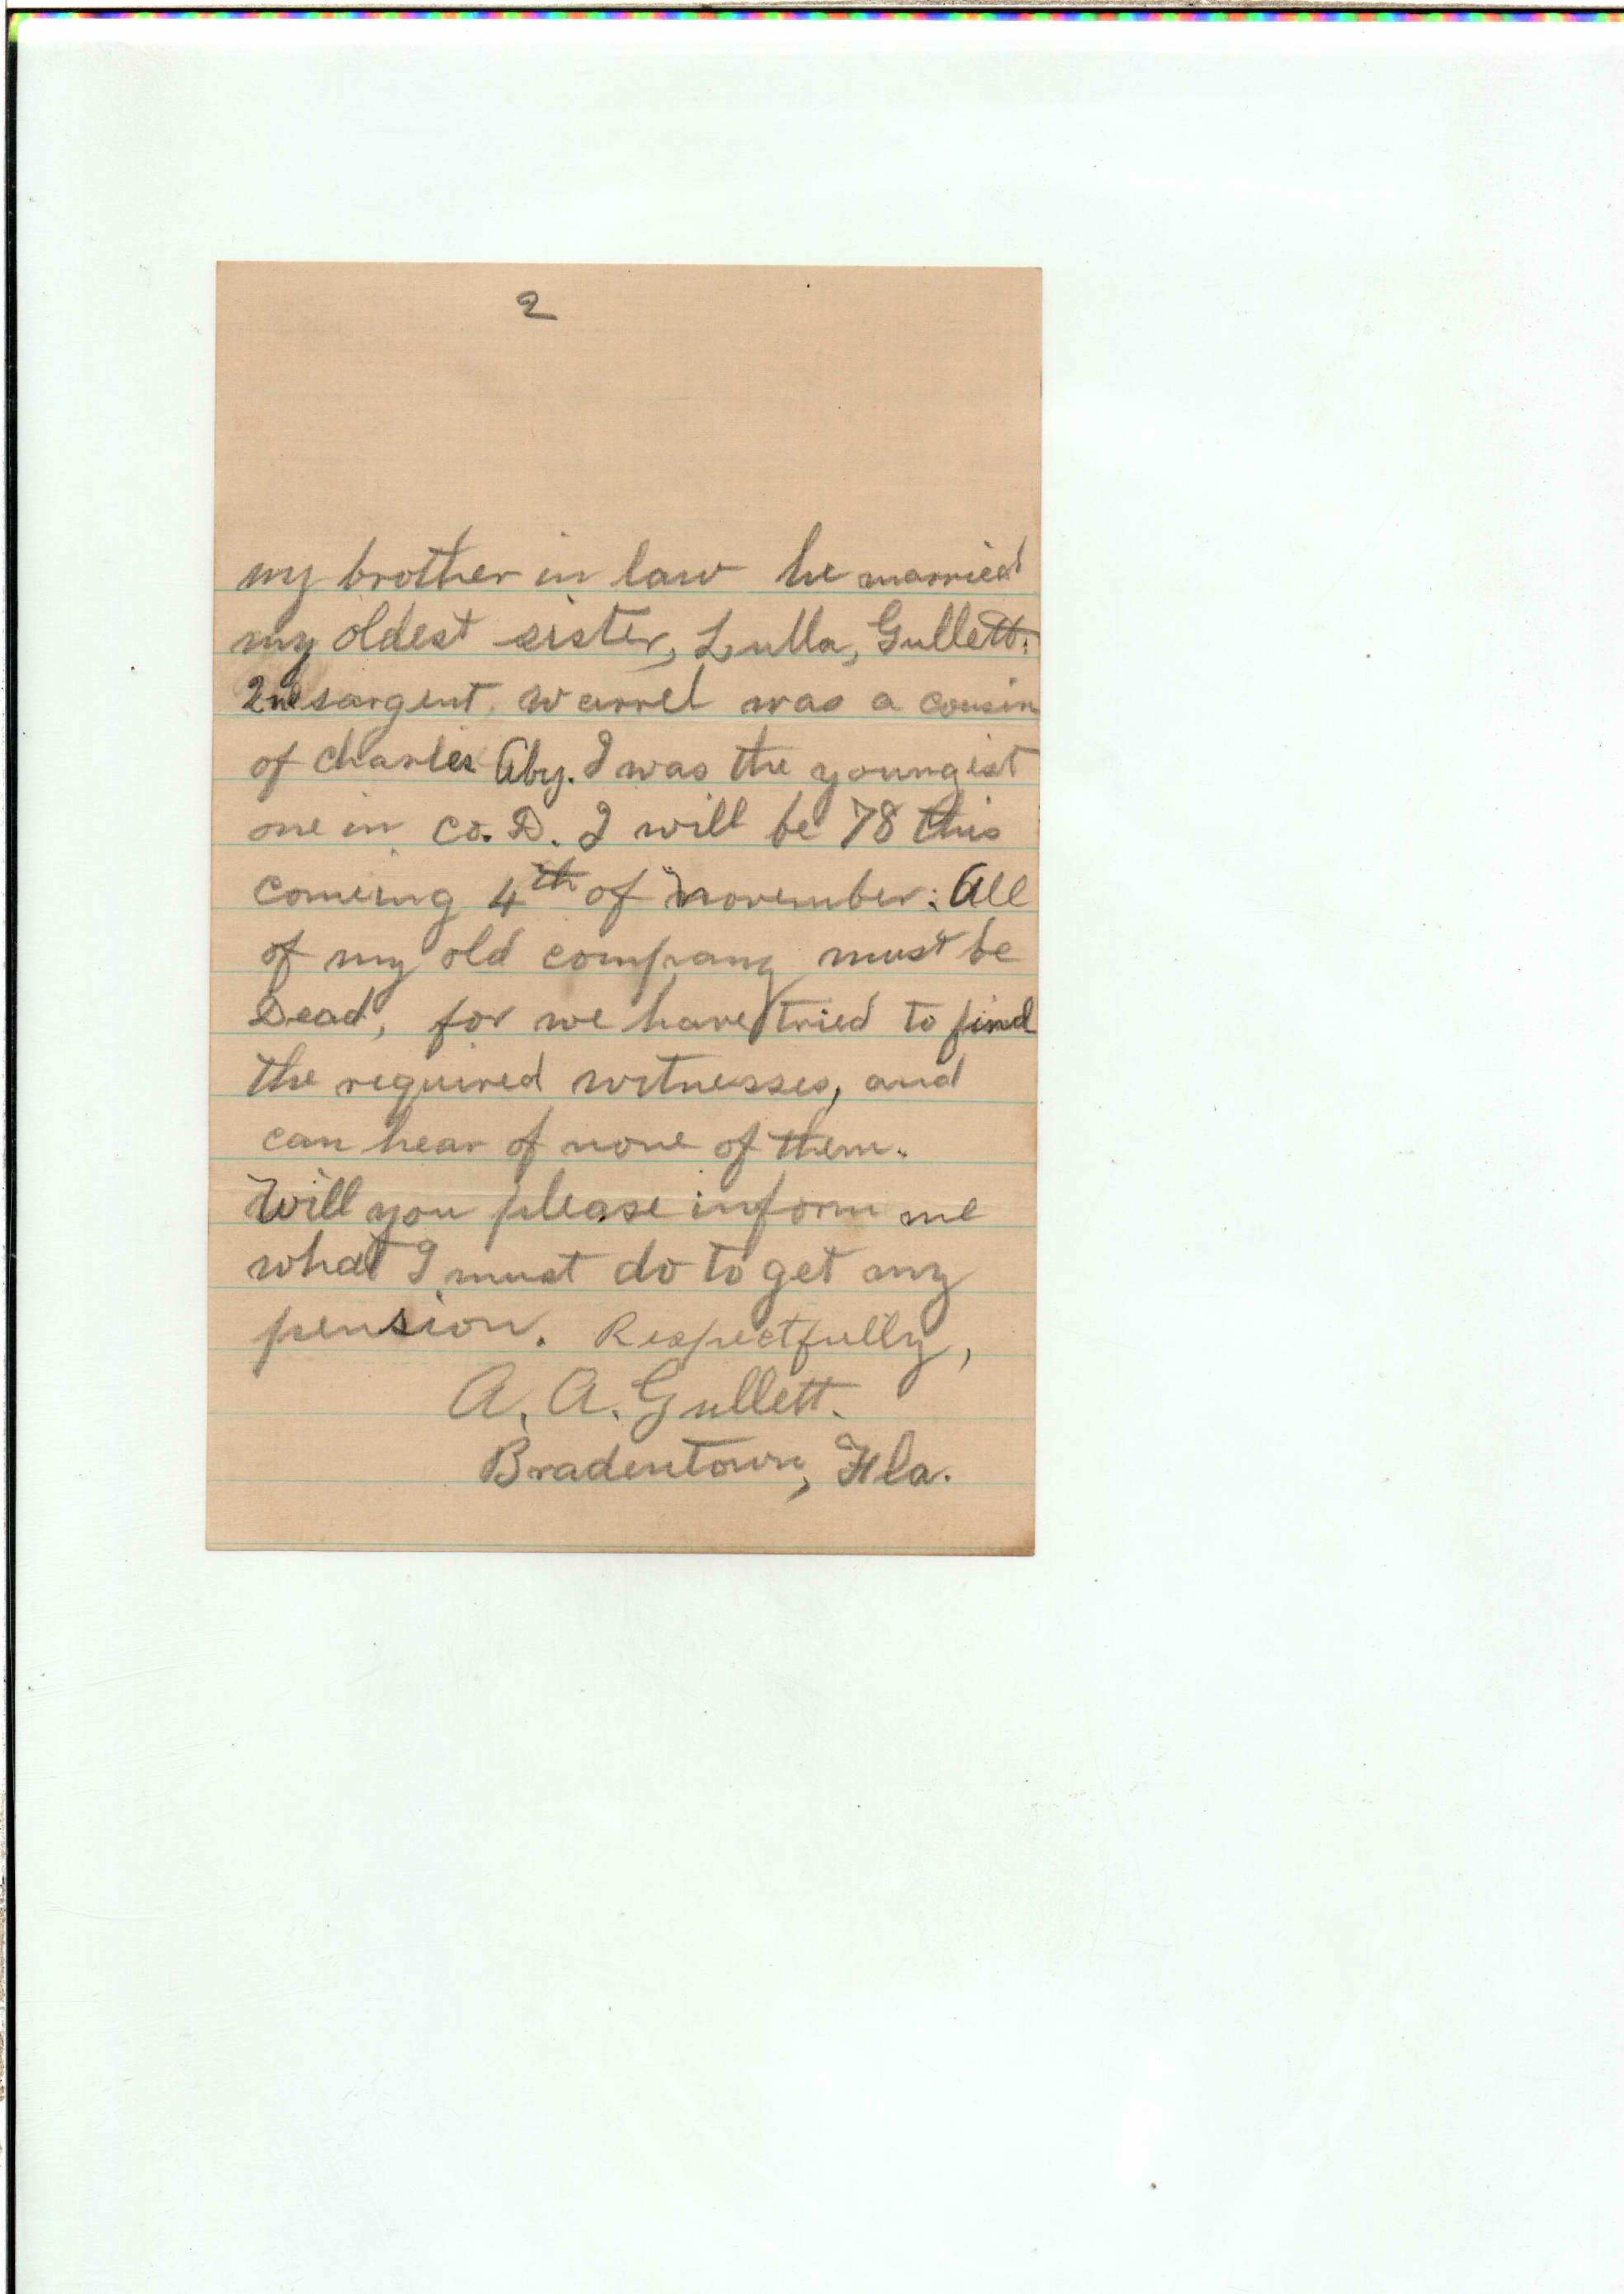 2
my brother in law he married
my oldest sister, Lulla, Gullett.
2nd sargent. Warrel was a cousin
of Charles Aby. I was the youngist
one in co. D. I will be 78 this
comeing 4th of November: All
of my old company must be
Dead, for we have tried to find
the required witnesses, and
can hear of none of them.
Will you please inform me
what I must do to get my
pension. Respectfully,
A. A. Gullett.
Bradentown, Fla.